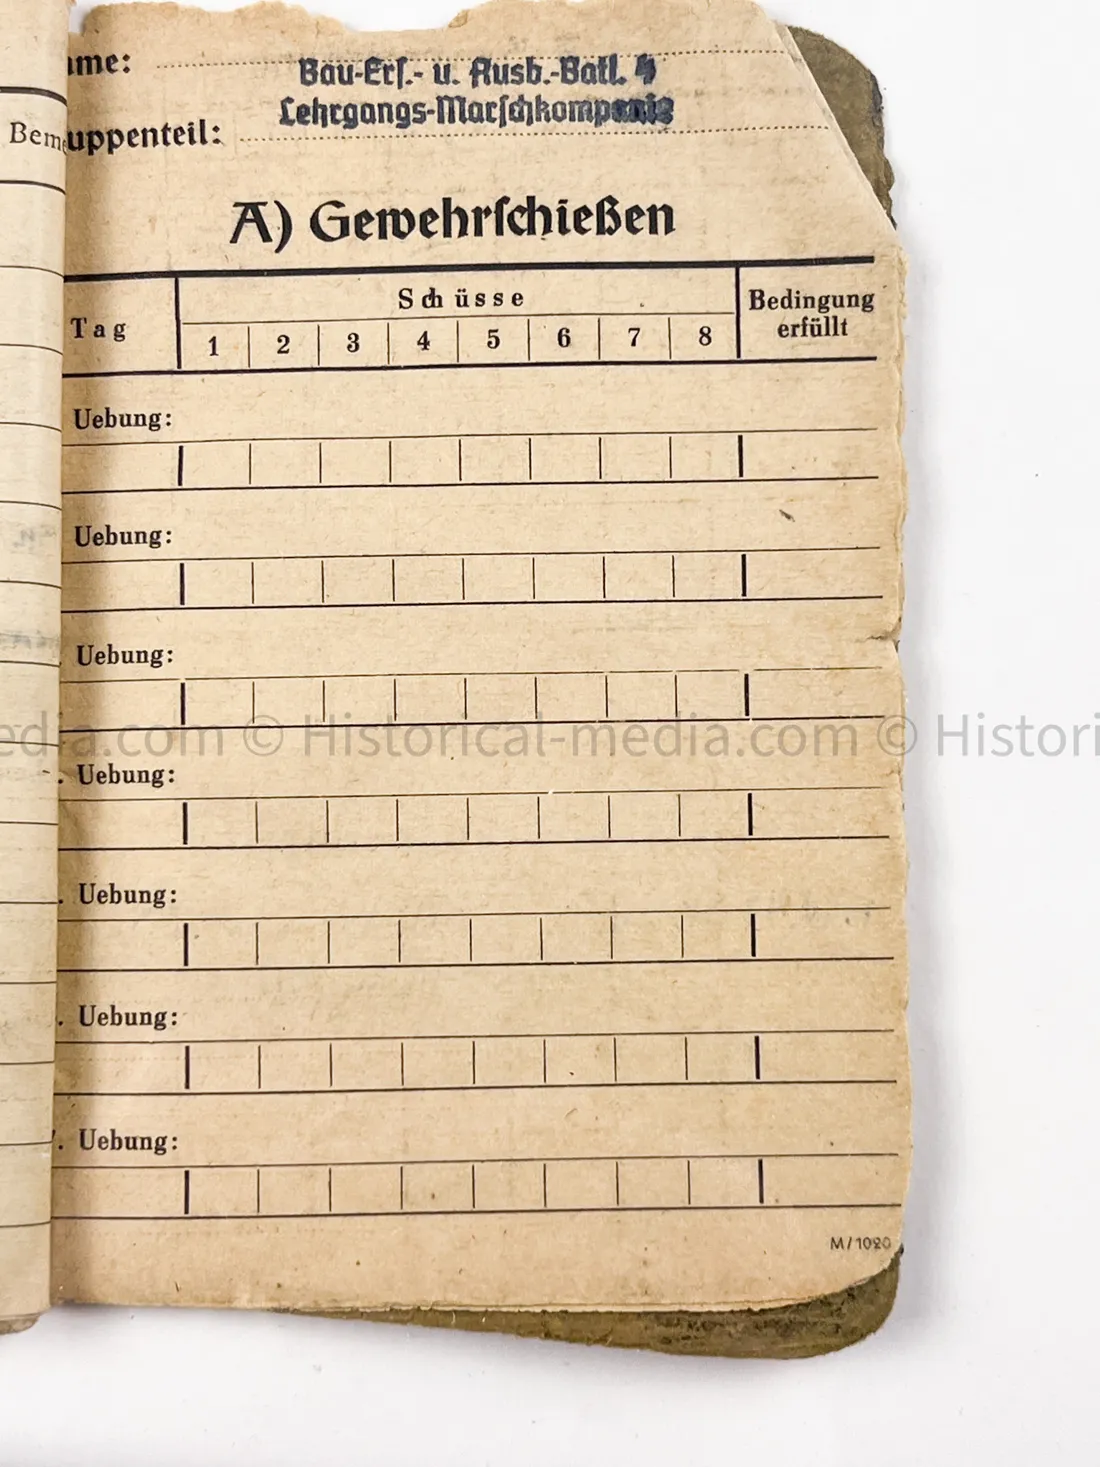 Beme
ame:
Bau-Erſ.- u. Ausb.-Batl. 4
Lehrgangs-Marſchkompanie
uppenteil:
A) Gewehrſchießen
Tag
Schüsse
Bedingung
erfüllt
1 2 3 4 5 6 7 8
Uebung:
Uebung:
Uebung:
edia.com © Historical-media.com © Histori
. Uebung:
. Uebung:
. Uebung:
. Uebung:
M/1020